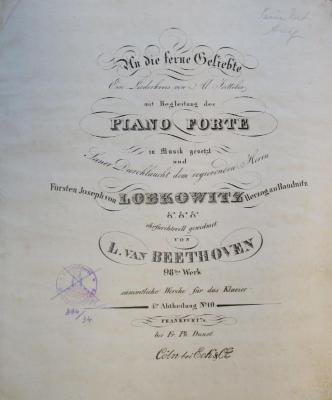 An die ferne Geliebte
Ein Liederkreis von Al. Jeitteles
mit Begleitung des
PIANO FORTE
in Musik gesetzt
und
Seiner Durchlaucht dem regierenden Herrn
Fürsten Joseph von LOBKOWITZ Herzog zu Raudnitz
&c. &c. &c.
ehrfurchtsvoll gewidmet
VON
L. VAN BEETHOVEN
98tes Werk
sämmtliche Werke für das Klavier
4te Abtheilung No. 10
FRANKFURT a/m
bei Fr. Ph. Dunst
Cöln bei Eck & Co